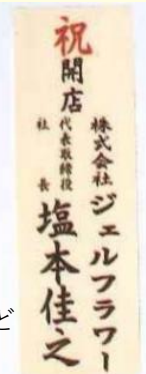 祝
開店
株式会社 ジェルフラワー
代表取締役
社長
塩本佳之
ど